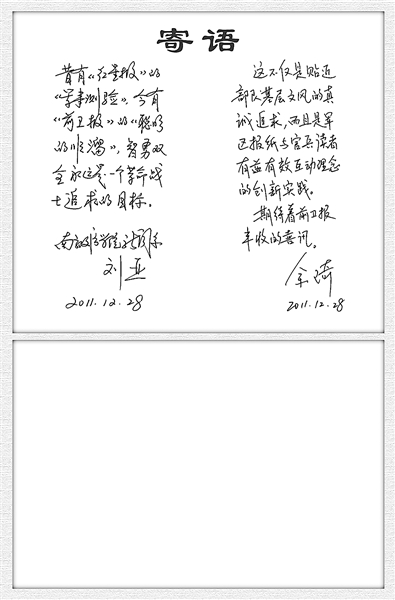 寄语
昔有《红星报》的
"军事测验"，今有
《前卫报》的"聪明
的顺溜"，智勇双
全永远是一个革命战
士追求的目标。
南
刘亚
2011.12.28
这不仅是贴近
部队基层文风的真
诚追求，而且是军
区报纸与官兵读者
有益有效互动理念
的创新实践。
期待着前卫报
丰收的喜讯。
2011.12.28